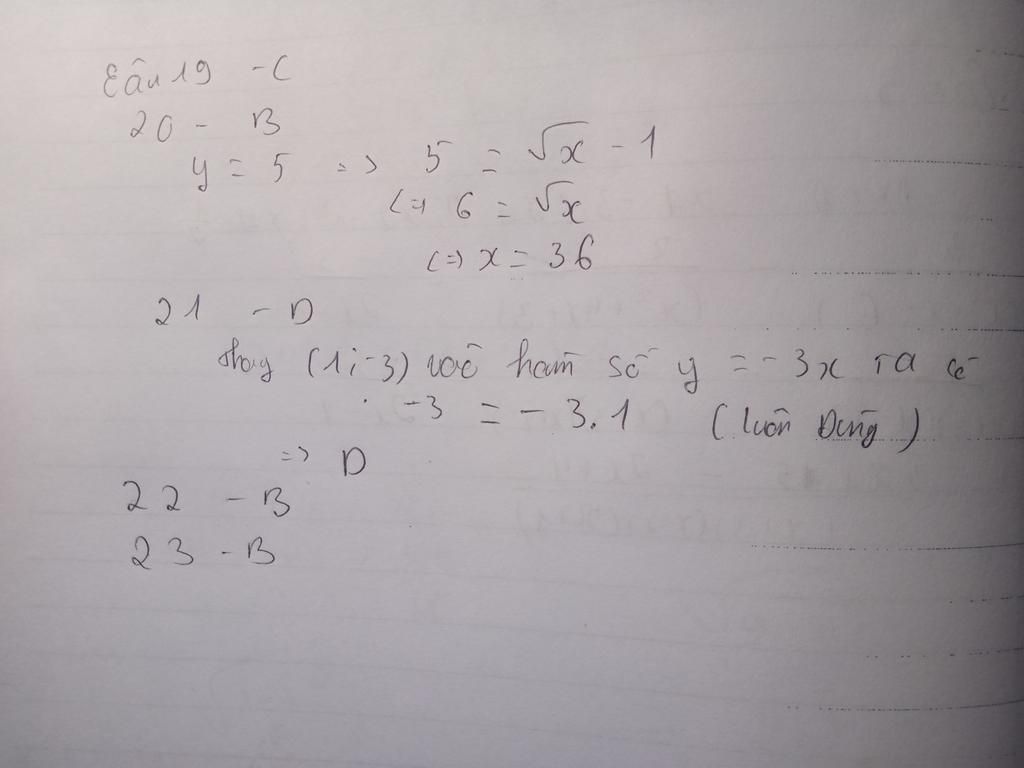 Câu 19 - C
20 - B
y = 5 => 5 = √x - 1
<=> 6 = √x
<=> x = 36
21 - D
Thay (1; -3) vào hàm số y = -3x ta có
-3 = -3.1 (luôn Đúng)
=> D
22 - B
23 - B